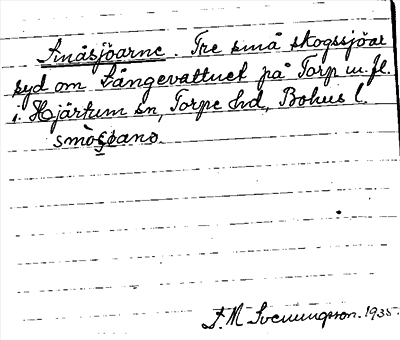 Småsjöarne. Tre små skogssjöar
syd om Långevattnet på Torp m.fl.
i Hjärtum sn, Torpe hd, Bohus l.
smòʂøanə.
S. M. Svenungsson. 1935.